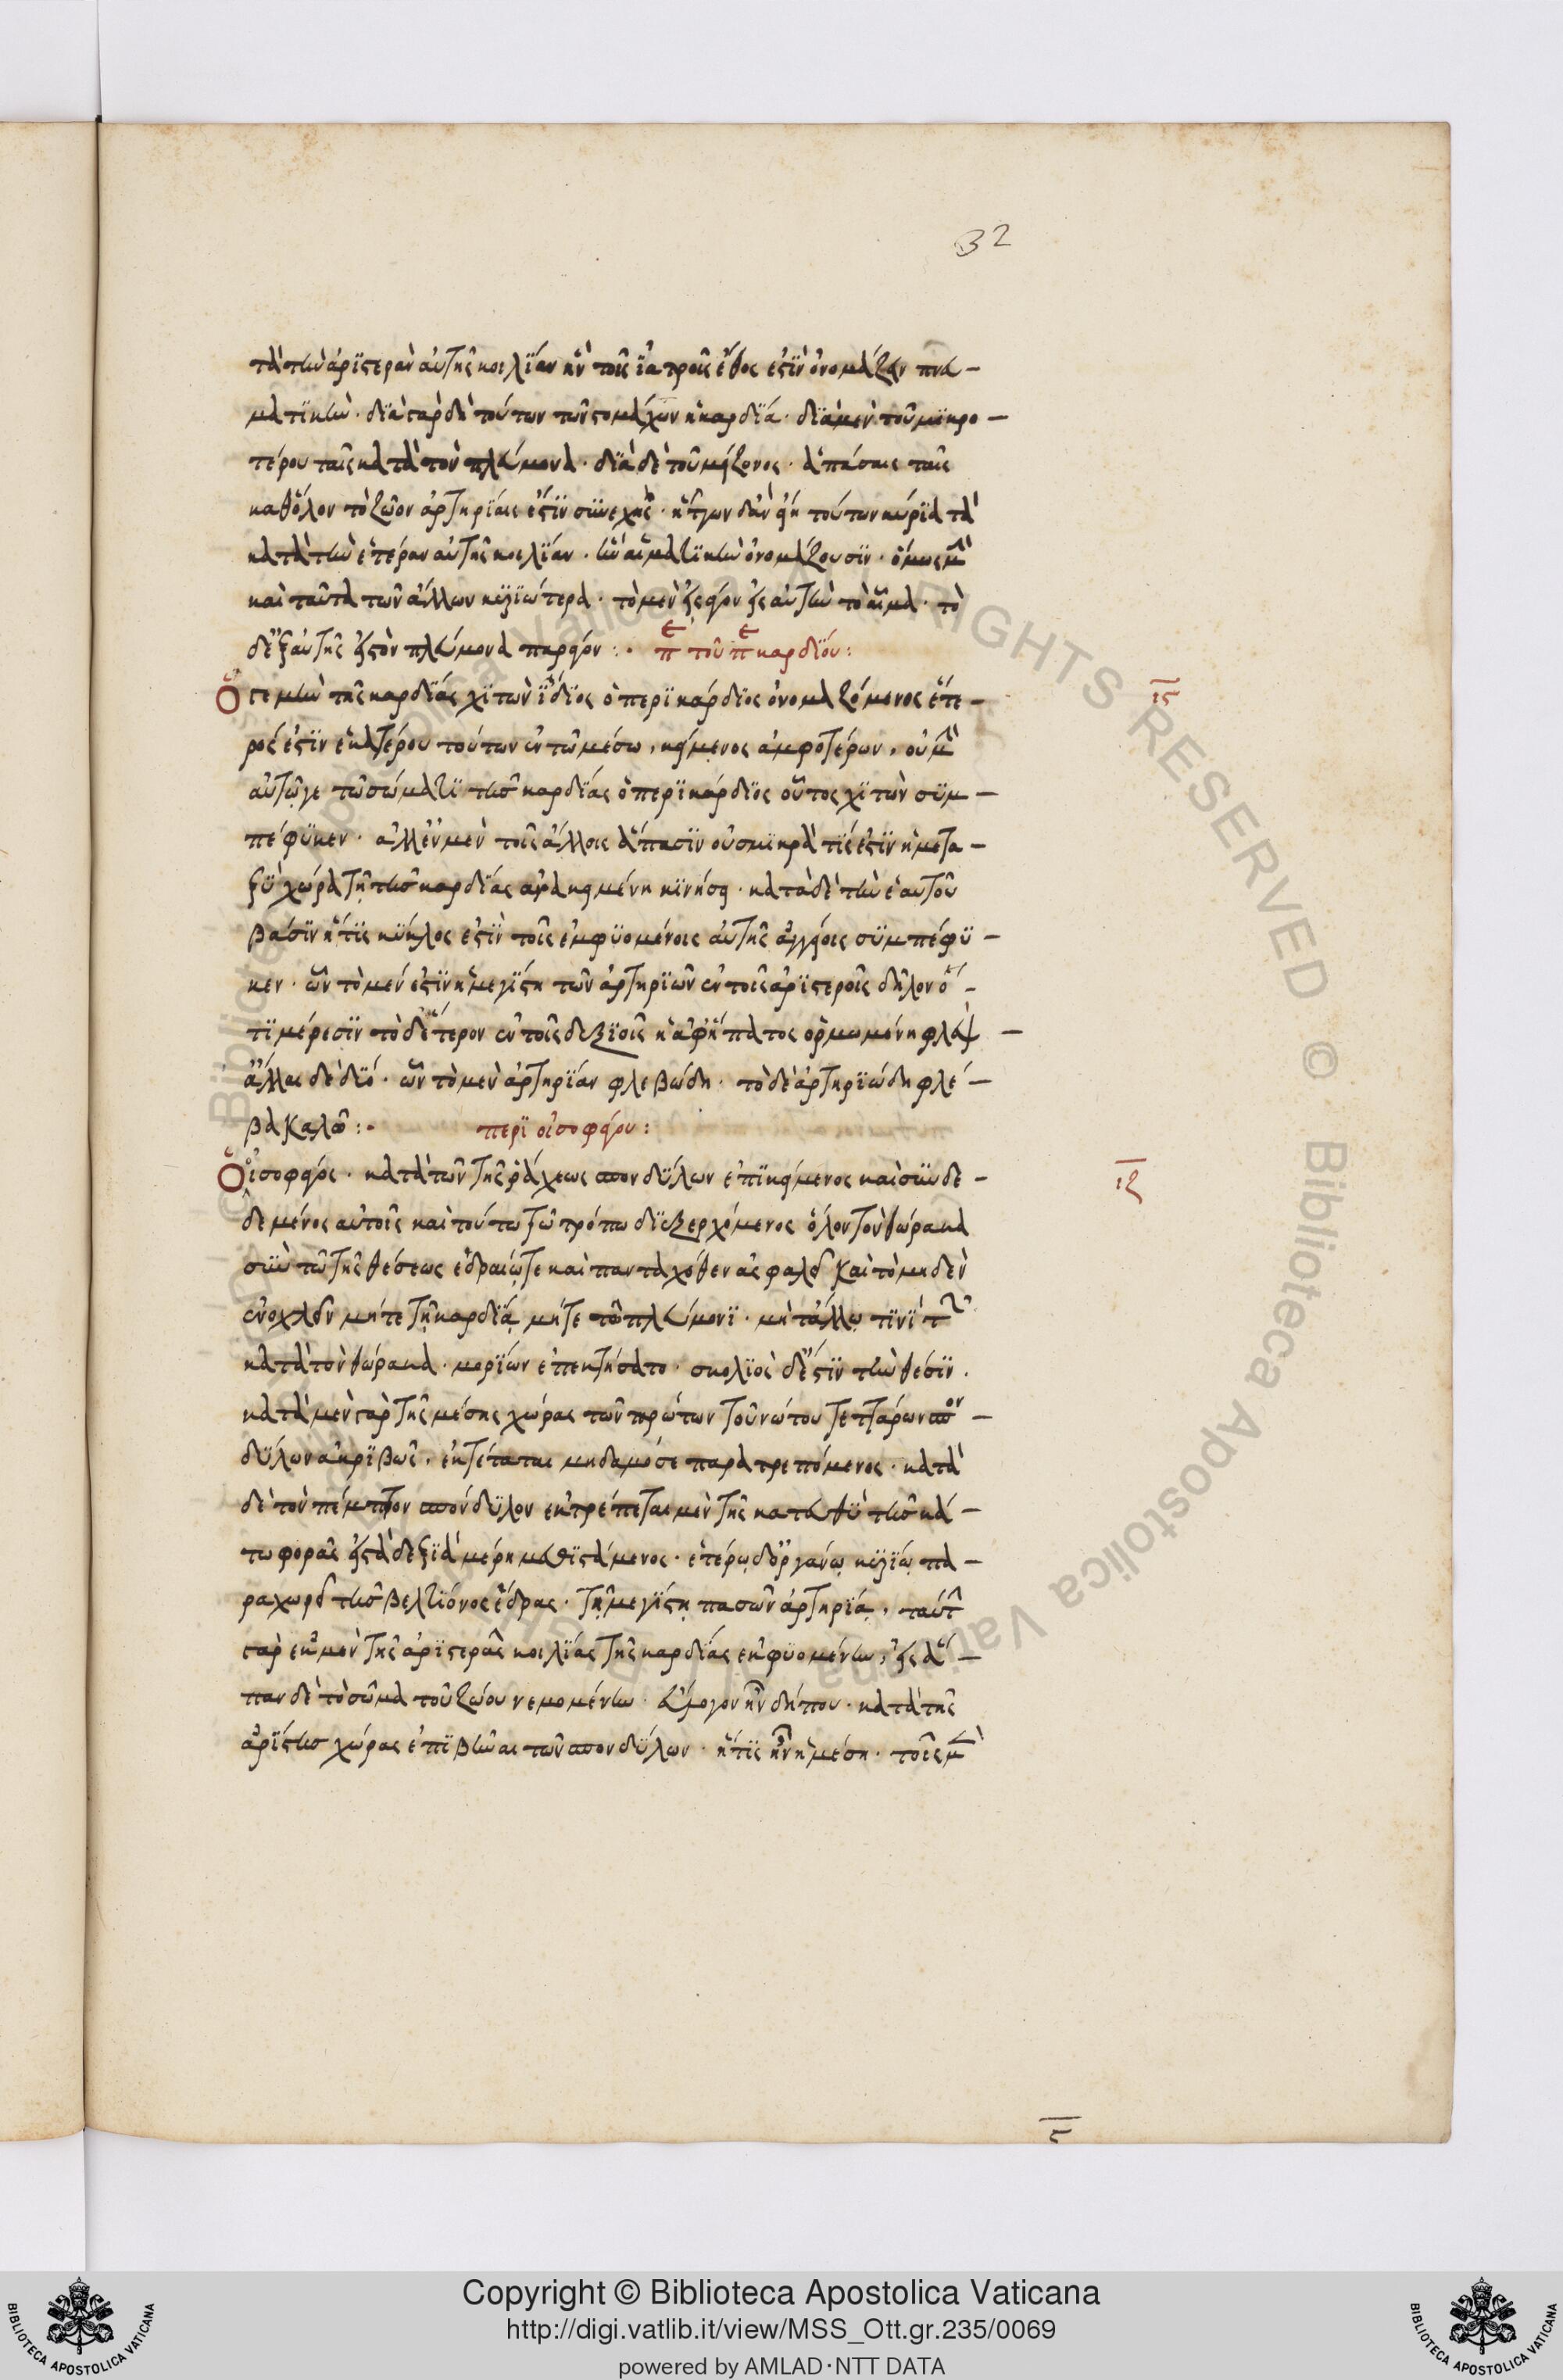 32
τὰ τὴν ἀρϊστερὰν αὐτῆς κοιλΐαν ἣν τοῖς ϊατροῖς ἔθος ἐστῒν ὀνομάζειν πνευ-
ματϊκὴν· δϊὰ γὰρ δὴ τούτων τῶν στομάχων ἡ καρδΐα· δϊὰ μὲν τοῦ μϊκρο-
τέρου ταῖς κατὰ τὸν πλεύμονα· δϊὰ δὲ τοῦ μείζονος· ἁπάσαις ταῖς
καθόλον τὸ ζῶον ἀρτηρΐαις ἐστῒν συνεχής· ἧττον δ' ἂν εἴη τούτων κύρϊα τὰ
κατὰ τὴν ἑτέραν αὐτῆς κοιλΐαν· ἣν αἱματϊκὴν ὀνομάζουσϊν· ὅμως μὴν
καὶ ταῦτα τῶν ἄλλων κυρϊώτερα· τὸ μὲν εἰσφέρον εἰς αὐτὴν τὸ αἷμα· τὸ
δ' ἐξ αὐτῆς εἰς τὸν πλεύμονα παρφέρον:· πε τοῦ πε καρδΐου:
Ὅ γε μὴν τῆς καρδΐας χϊτὼν ΐδϊος ὁ περϊκάρδϊος ὀνομαζόμενος ἕτε-
ρός ἐστϊν ἑκατέρου τούτων ἐν τῶ μέσω, κείμενος ἀμφοτέρων, οὐ μὴν
αὐτῶ γε τῶ σώματϊ τῆς καρδΐας ὁ περϊκάρδϊος οὗτος χϊτὼν συμ-
πέφυκεν· ἀλλ' ἐν μὲν τοῖς ἄλλοις ἅπασϊν οὐ σμϊκρά τΐς ἐστϊν ἡ μετα-
ξὺ χώρα τῇ τῆς καρδΐας ἀνακειμένη κϊνήσει· κατὰ δὲ τὴν ἑαυτοῦ
βάσϊν ἥτϊς κύκλος ἐστῒν τοῖς ἐμφυομένοις αὐτῆς ἀγγείοις συμπέφυ-
κεν· ὧν τὸ μέν ἐστϊν ἡ μεγΐστη τῶν ἀρτηρϊῶν ἐν τοῖς ἀρϊστεροῖς δῆλον ὅ-
τϊ μέρεσϊν τὸ δ' ἕτερον ἐν τοῖς δεξϊοῖς ἡ ἀφ' ἥπατος ὁρμωμένη φλέψ -
ἄλλαι δὲ δύο· ὧν τὸ μὲν ἀρτηρΐαν φλεβώδη· τὸ δὲ ἀρτηρϊώδη φλέ-
βα καλῶ:· περῒ οἰσοφάγου:
Ὁ οἰσοφάγος· κατὰ τῶν τῆς ῥάχεως σπονδύλων ἐπϊκείμενος καὶ συνδε-
δεμένος αὐτοῖς καὶ τούτω τῶ τρόπω δϊεξερχόμενος ὅλον τὸν θώρακα
σὺν τῶ τῆς θέσεως ἑδραίῳ τε καὶ πανταχόθεν ἀσφαλεῖ καὶ τὸ μηδὲν
ἐνοχλεῖν μήτε τῇ καρδΐᾳ μήτε τῶ πλεύμονϊ· μήτ' ἄλλῳ τϊνῒ τῶν
κατὰ τὸν θώρακα· μορΐων ἐπεκτήσατο· σκολϊὸς δ' ἐστϊν τὴν θέσϊν·
κατὰ μὲν γὰρ τῆς μέσης χώρας τῶν πρώτων τοῦ νώτου τεττάρων σπον-
δύλων ἀκρϊβῶς, ἐκτέταται μηδαμόσε παρατρεπόμενος· κατὰ
δὲ τὸν πέμπτον σπόνδυλον ἐκτρέπεται μὲν τῆς κατευθὺ τῆς κά-
τω φορᾶς εἰς τὰ δεξϊὰ μέρη μεθϊστάμενος· ἑτέρῳ δ' ὀργάνῳ κυρϊῳ πα-
ραχωρεῖ τῆς βελτιόνος ἕδρας· τῇ μεγΐστῃ πασῶν ἀρτηρΐᾳ, ταύτῃ
γὰρ ἐκ μὲν τῆς ἀρϊστερᾶς κοιλΐας τῆς καρδΐας ἐκφυομένην, εἰς ἅ-
παν δὲ τὸ σῶμα τοῦ ζώου νεμομένην· εὔλογον ἦν δήπου· κατὰ τῆς
ἀρΐστης χώρας ἐπϊβῆναι τῶν σπονδύλων· ἥτϊς ἦν ἡ μέση· τοῖς μὲν
ις
ιζ
ς
Copyright © Biblioteca Apostolica Vaticana
http://digi.vatlib.it/view/MSS_Ott.gr.235/0069
powered by AMLAD·NTT DATA
BIBLIOTECA APOSTOLICA VATICANA
BIBLIOTECA APOSTOLICA VATICANA